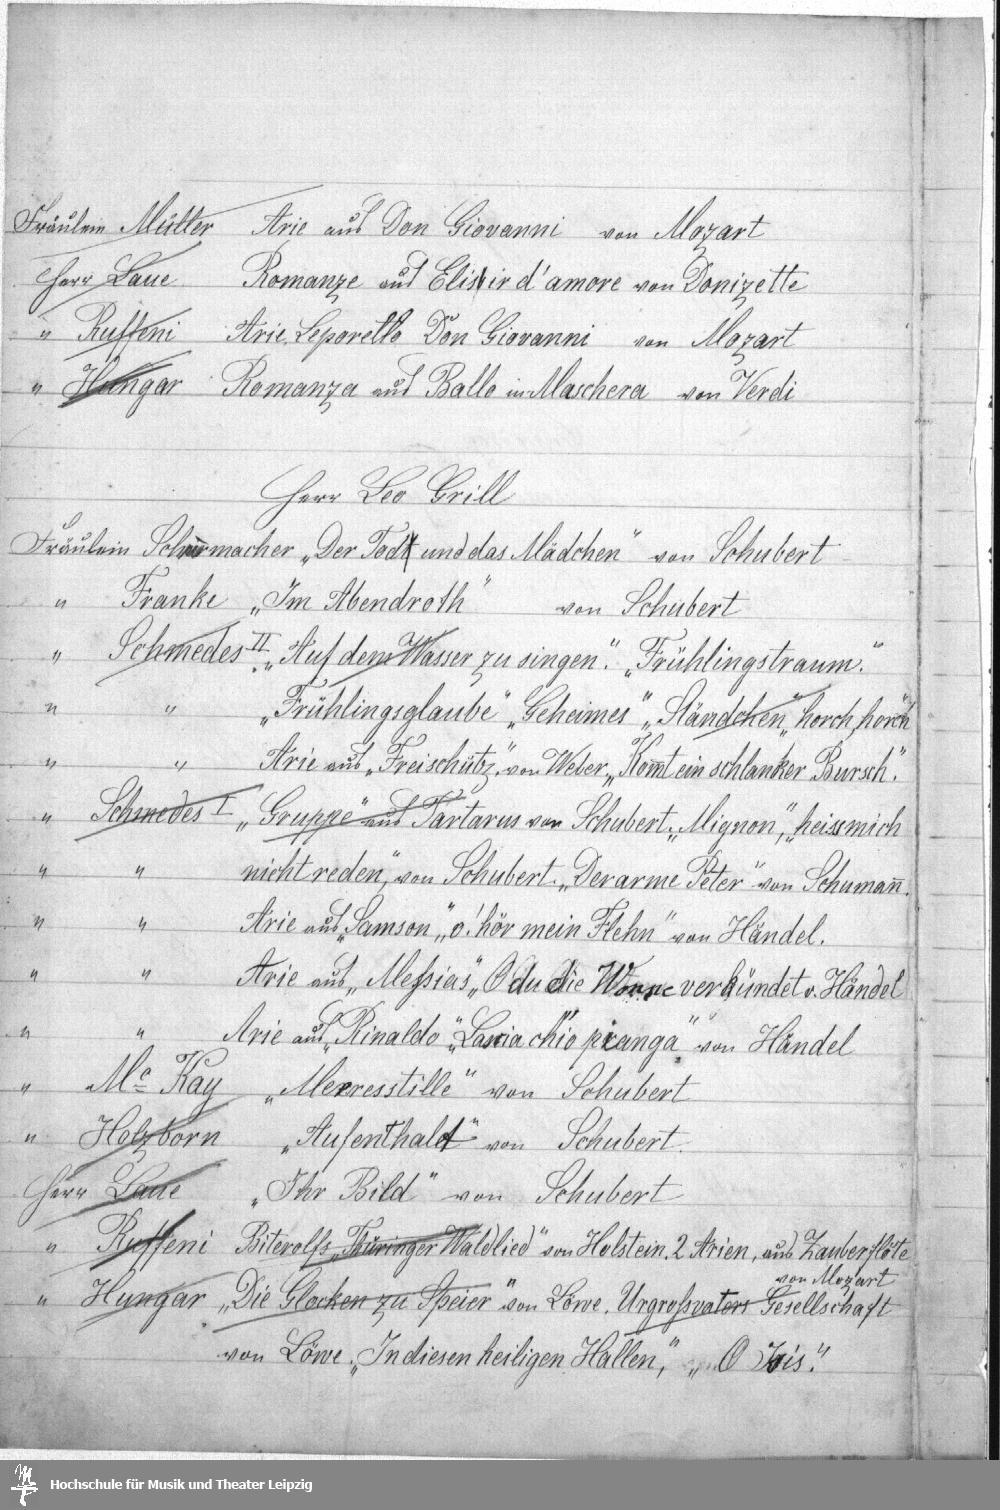 Fräulein Müller Arie aus Don Giovanni von Mozart
Herr Laue Romanze aus Elisir d'amore von Donizette
" Ruffeni Arie Leporello Don Giovanni von Mozart
" Hungar Romanza aus Ballo in Maschera von Verdi
Herr Leo Grill
Fräulein Schürmacher „Der Tod und das Mädchen" von Schubert
" Franke „Im Abendroth" von Schubert
" Schmedes II. „Auf dem Wasser zu singen." „Frühlingstraum."
" " „Frühlingsglaube" „Geheimes" „Ständchen" „horch, horch"
" " Arie aus „Freischütz" von Weber „Kom̄t ein schlanker Bursch".
" Schmedes I „Gruppe" aus Tartarus von Schubert. „Mignon", „heiss mich
" " nicht reden", von Schubert. „Der arme Peter" von Schuman̄.
" " Arie aus „Samson", „o! hör mein Flehn" von Händel.
" " Arie aus „Messias" O du die Wonne verkündet v. Händel
" " Arie aus „Rinaldo" „Lascia ch'io pianga" von Händel
" Mc Kay „Meeresstille" von Schubert
" Holzborn „Aufenthalt" von Schubert.
Herr Laue „Ihr Bild" von Schubert
" Ruffeni Biterolfs „Thüringer Waldlied" von Holstein. 2 Arien, aus Zauberflöte
von Mozart
" Hungar „Die Glocken zu Speier" von Löwe. Urgrossvaters Gesellschaft
von Löwe. „In diesen heiligen Hallen", „O Isis".
Hochschule für Musik und Theater Leipzig